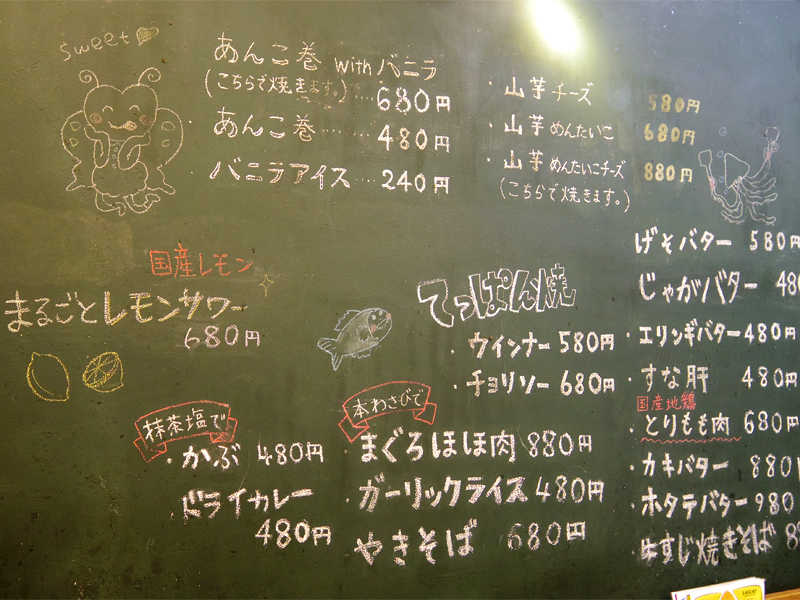 sweet
あんこ巻 with バニラ
(こちらで焼きます。)‥‥680円
あんこ巻‥‥‥480円
バニラアイス‥‥240円
・山芋チーズ 580円
・山芋めんたいこ 680円
・山芋めんたいこチーズ 880円
(こちらで焼きます。)
国産レモン
まるごとレモンサワー
680円
抹茶塩で
・かぶ 480円
ドライカレー
480円
てっぱん焼
・ウインナー 580円
・チョリソー 680円
本わさびで
・まぐろほほ肉 880円
・ガーリックライス 480円
やきそば 680円
げそバター 580円
じゃがバター 480
・エリンギバター 480円
・すな肝 480円
国産地鶏
・とりもも肉 680円
・カキバター 880
・ホタテバター 980
・牛すじ焼きそば